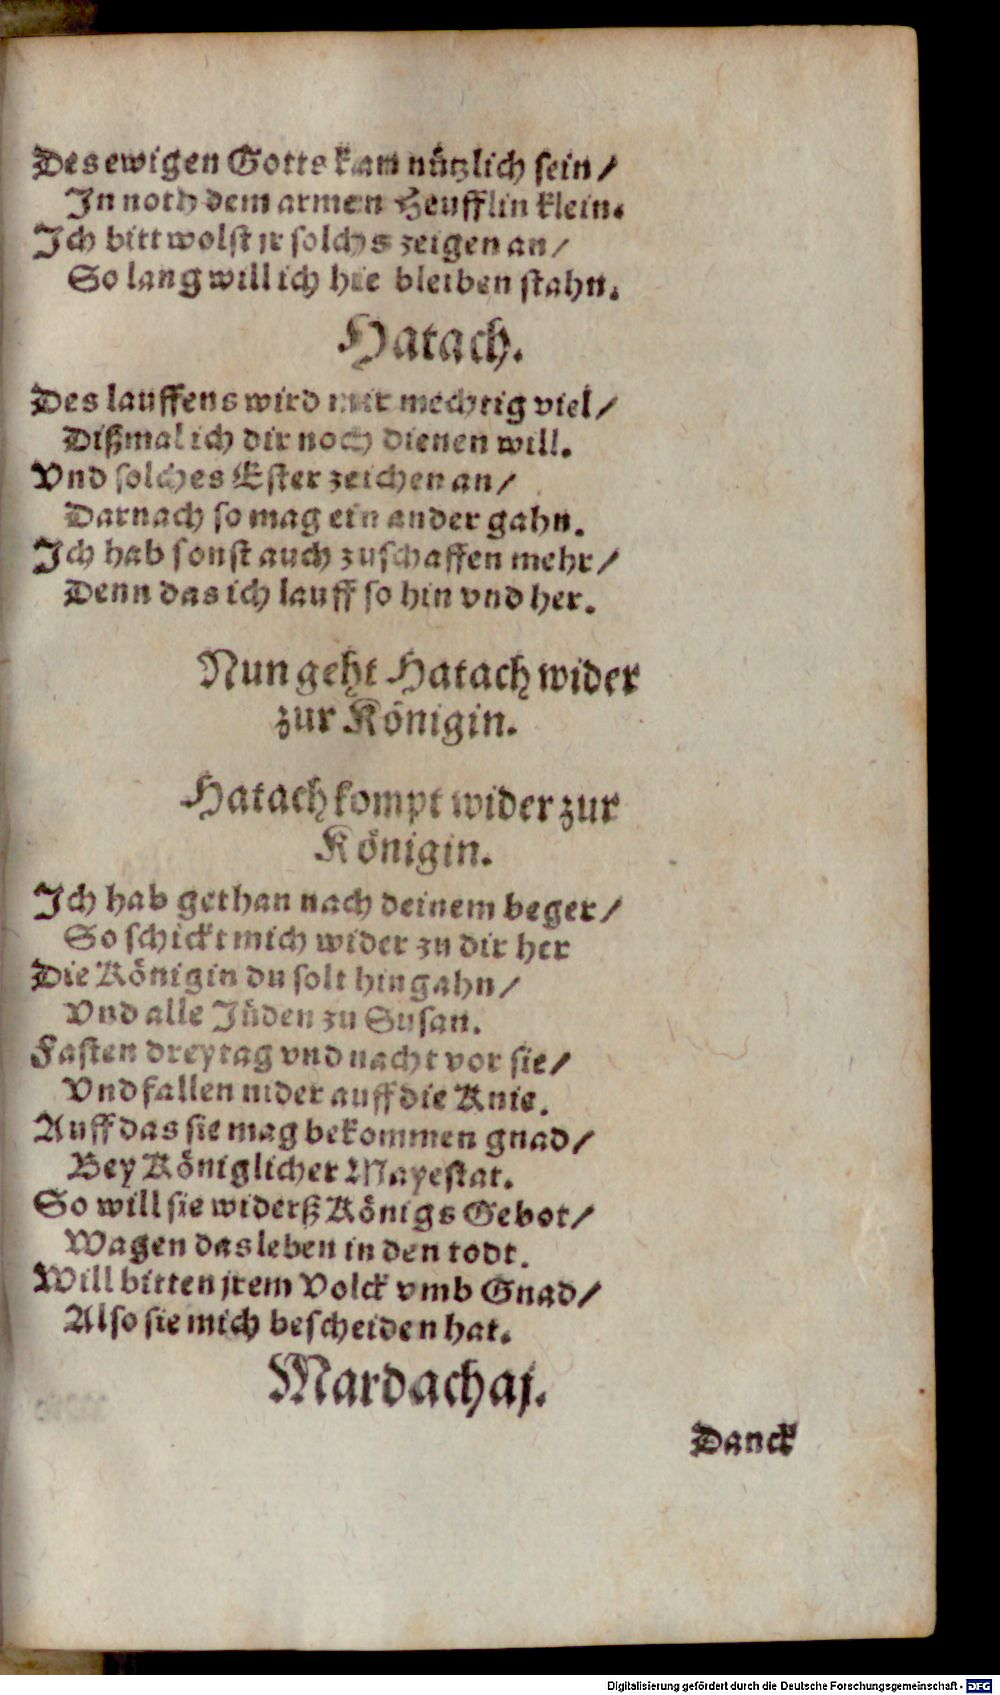 Des ewigen Gotts kan nützlich sein/
In noth dem armen Heufflin klein.
Ich bitt wolst jr solchs zeigen an/
So lang will ich hie bleiben stahn.
Hatach.
Des lauffens wird mir mechtig viel/
Dißmal ich dir noch dienen will.
Vnd solches Ester zeichen an/
Darnach so mag ein ander gahn.
Ich hab sonst auch zuschaffen mehr/
Denn das ich lauff so hin vnd her.
Nun geht Hatach wider
zur Königin.
Hatach kompt wider zur
Königin.
Ich hab gethan nach deinem beger/
So schickt mich wider zu dir her
Die Königin du solt hingahn/
Vnd alle Jüden zu Susan.
Fasten drey tag vnd nacht vor sie/
Vnd fallen nider auff die Knie.
Auff das sie mag bekommen gnad/
Bey Königlicher Mayestat.
So will sie widerß Königs Gebot/
Wagen das leben in den todt.
Will bitten jrem Volck vmb Gnad/
Also sie mich bescheiden hat.
Mardachaj.
Danck
Digitalisierung gefördert durch die Deutsche Forschungsgemeinschaft - DFG